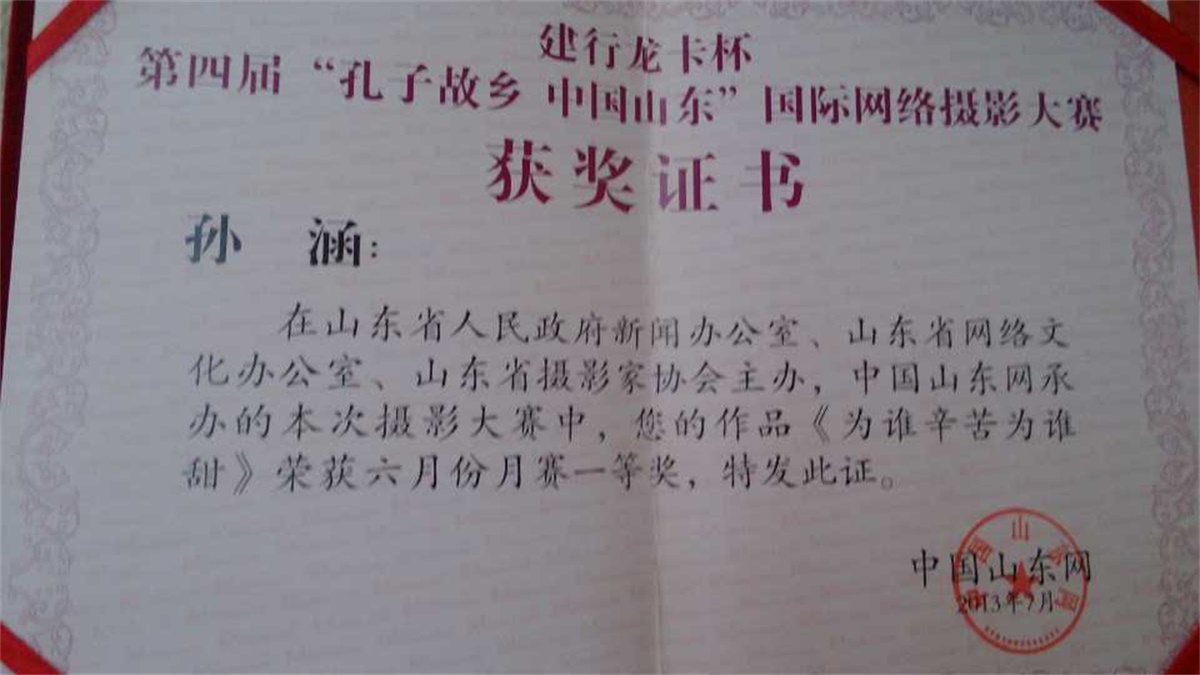 建行龙卡杯
第四届“孔子故乡 中国山东”国际网络摄影大赛
获奖证书
孙 涵：
在山东省人民政府新闻办公室、山东省网络文
化办公室、山东省摄影家协会主办，中国山东网承
办的本次摄影大赛中，您的作品《为谁辛苦为谁
甜》荣获六月份月赛一等奖，特发此证。
中国山东网
2013年7月